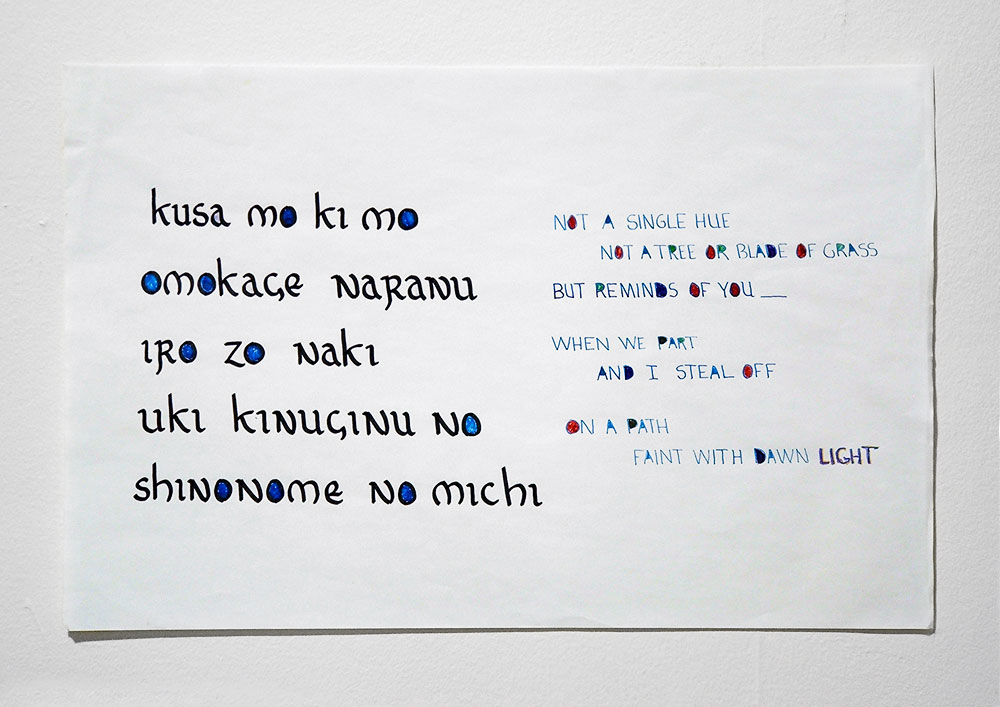 kusa mo ki mo
omokage naranu
iro zo naki
uki kinuginu no
shinonome no michi
NOT A SINGLE HUE
NOT A TREE OR BLADE OF GRASS
BUT REMINDS OF YOU __
WHEN WE PART
AND I STEAL OFF
ON A PATH
FAINT WITH DAWN LIGHT